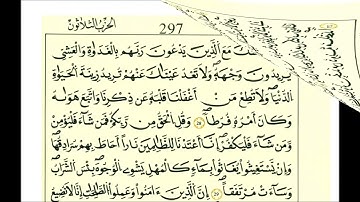 الحزب الثلاثون
297
ـك مع الذين يدعون ربهم بالغدوة والعشي
يريدون وجهه ولا تعد عيناك عنهم تريد زينة الحيوة
الدنيا ولا تطع من أغفلنا قلبه عن ذكرنا واتبع هوىه
وكان أمره فرطا ٢٨ وقل الحق من ربكم فمن شاء فليؤمن
ومن شاء فليكفر إنا أعتدنا للظالمين نارا أحاط بهم سرادقها
وإن يستغيثوا يغاثوا بماء كالمهل يشوي الوجوه بئس الشراب
وساءت مرتفقا ٢٩ إن الذين ءامنوا وعملوا الصالحات إنا لا نضيع